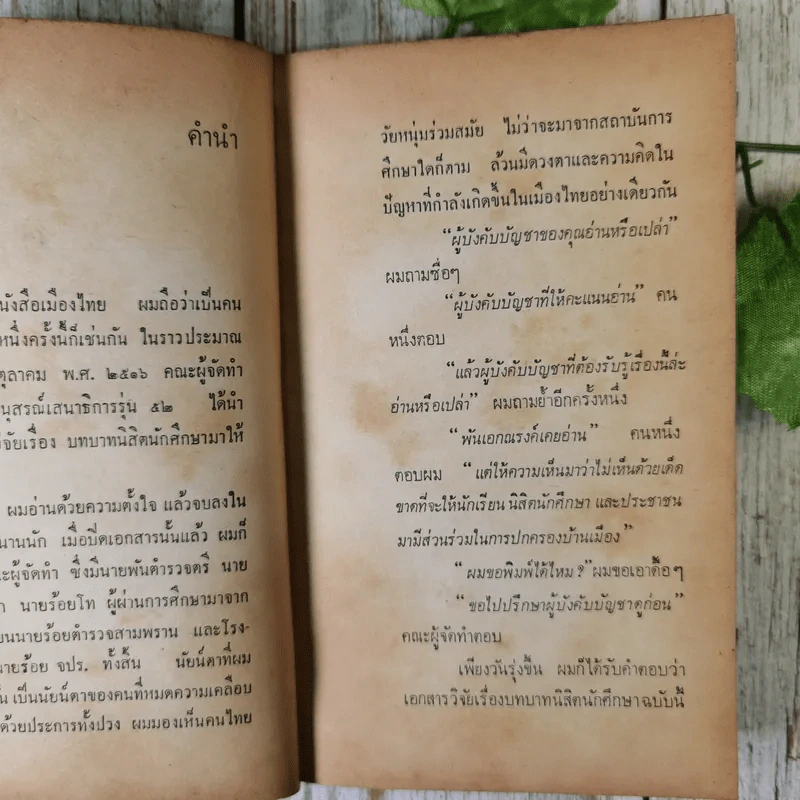 คำนำ
นังสือเมืองไทย ผมถือว่าเป็นคน
หนึ่งครั้งนี้ก็เช่นกัน ในราวประมาณ
ตุลาคม พ.ศ. ๒๕๑๖ คณะผู้จัดทำ
นุสรณ์เสนาธิการรุ่น ๕๒ ได้นำ
วิจัยเรื่อง บทบาทนิสิตนักศึกษามาให้
ผมอ่านด้วยความตั้งใจ แล้วจบลงใน
นานนัก เมื่อปิดเอกสารนั้นแล้ว ผมก็
ณะผู้จัดทำ ซึ่งมีนายพันตำรวจตรี นาย
นายร้อยโท ผู้ผ่านการศึกษามาจาก
ยนนายร้อยตำรวจสามพราน และโรง-
นายร้อย จปร. ทั้งสิ้น นัยน์ตาที่ผม
เป็นนัยน์ตาของคนที่หมดความเคลือบ
ด้วยประการทั้งปวง ผมมองเห็นคนไทย
วัยหนุ่มร่วมสมัย ไม่ว่าจะมาจากสถาบันการ
ศึกษาใดก็ตาม ล้วนมีดวงตาและความคิดใน
ปัญหาที่กำลังเกิดขึ้นในเมืองไทยอย่างเดียวกัน
“ผู้บังคับบัญชาของคุณอ่านหรือเปล่า”
ผมถามซื่อๆ
“ผู้บังคับบัญชาที่ให้คะแนนอ่าน” คน
หนึ่งตอบ
“แล้วผู้บังคับบัญชาที่ต้องรับรู้เรื่องนี้ล่ะ
อ่านหรือเปล่า” ผมถามย้ำอีกครั้งหนึ่ง
“พันเอกณรงค์เคยอ่าน” คนหนึ่ง
ตอบผม “แต่ให้ความเห็นมาว่าไม่เห็นด้วยเด็ด
ขาดที่จะให้นักเรียน นิสิตนักศึกษา และประชาชน
มามีส่วนร่วมในการปกครองบ้านเมือง”
“ผมขอพิมพ์ได้ไหม?” ผมขอเอาดื้อๆ
“ขอไปปรึกษาผู้บังคับบัญชาดูก่อน”
คณะผู้จัดทำตอบ
เพียงวันรุ่งขึ้น ผมก็ได้รับคำตอบว่า
เอกสารวิจัยเรื่องบทบาทนิสิตนักศึกษาฉบับนี้